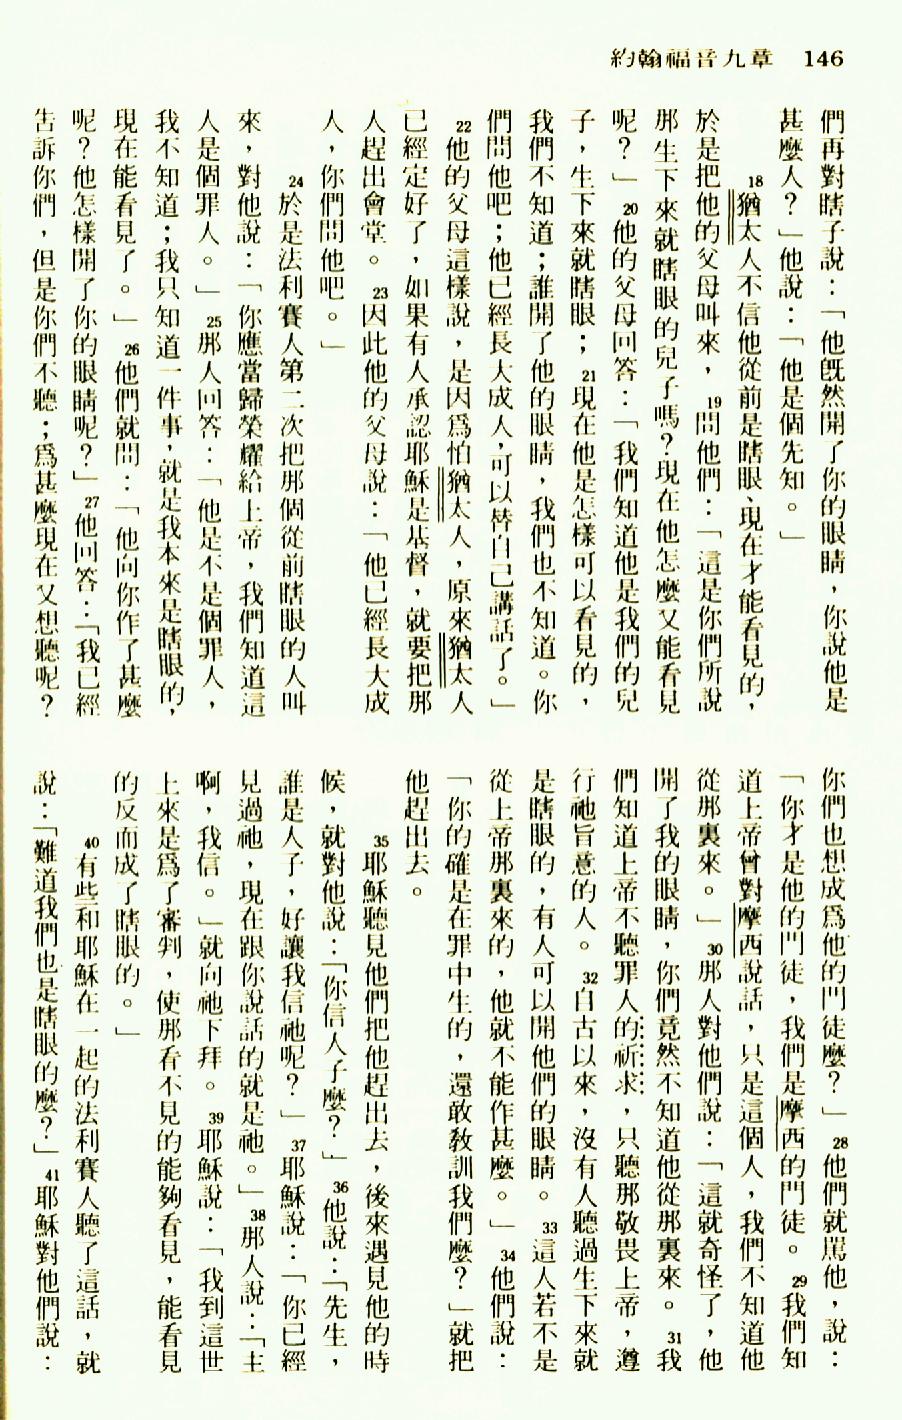 約翰福音九章　146
們再對瞎子說：「他旣然開了你的眼睛，你說他是
甚麼人？」他說：「他是個先知。」
18猶太人不信他從前是瞎眼、現在才能看見的，
於是把他的父母叫來，19問他們：「這是你們所說
那生下來就瞎眼的兒子嗎？現在他怎麼又能看見
呢？」20他的父母回答：「我們知道他是我們的兒
子，生下來就瞎眼；21現在他是怎樣可以看見的，
我們不知道；誰開了他的眼睛，我們也不知道。你
們問他吧；他已經長大成人，可以替自己講話了。」
22他的父母這樣說，是因爲怕猶太人，原來猶太人
已經定好了，如果有人承認耶穌是基督，就要把那
人趕出會堂。23因此他的父母說：「他已經長大成
人，你們問他吧。」
24於是法利賽人第二次把那個從前瞎眼的人叫
來，對他說：「你應當歸榮耀給上帝，我們知道這
人是個罪人。」25那人回答：「他是不是個罪人，
我不知道；我只知道一件事，就是我本來是瞎眼的，
現在能看見了。」26他們就問：「他向你作了甚麼
呢？他怎樣開了你的眼睛呢？」27他回答：「我已經
告訴你們，但是你們不聽；爲甚麼現在又想聽呢？
你們也想成爲他的門徒麼？」28他們就駡他，說：
「你才是他的門徒，我們是摩西的門徒。29我們知
道上帝曾對摩西說話，只是這個人，我們不知道他
從那裏來。」30那人對他們說：「這就奇怪了，他
開了我的眼睛，你們竟然不知道他從那裏來。31我
們知道上帝不聽罪人的祈求，只聽那敬畏上帝，遵
行祂旨意的人。32自古以來，沒有人聽過生下來就
是瞎眼的，有人可以開他們的眼睛。33這人若不是
從上帝那裏來的，他就不能作甚麼。」34他們說：
「你的確是在罪中生的，還敢敎訓我們麼？」就把
他趕出去。
35耶穌聽見他們把他趕出去，後來遇見他的時
候，就對他說：「你信人子麼？」36他說：「先生，
誰是人子，好讓我信祂呢？」37耶穌說：「你已經
見過祂，現在跟你說話的就是祂。」38那人說：「主
啊，我信。」就向祂下拜。39耶穌說：「我到這世
上來是爲了審判，使那看不見的能夠看見，能看見
的反而成了瞎眼的。」
40有些和耶穌在一起的法利賽人聽了這話，就
說：「難道我們也是瞎眼的麼？」41耶穌對他們說：